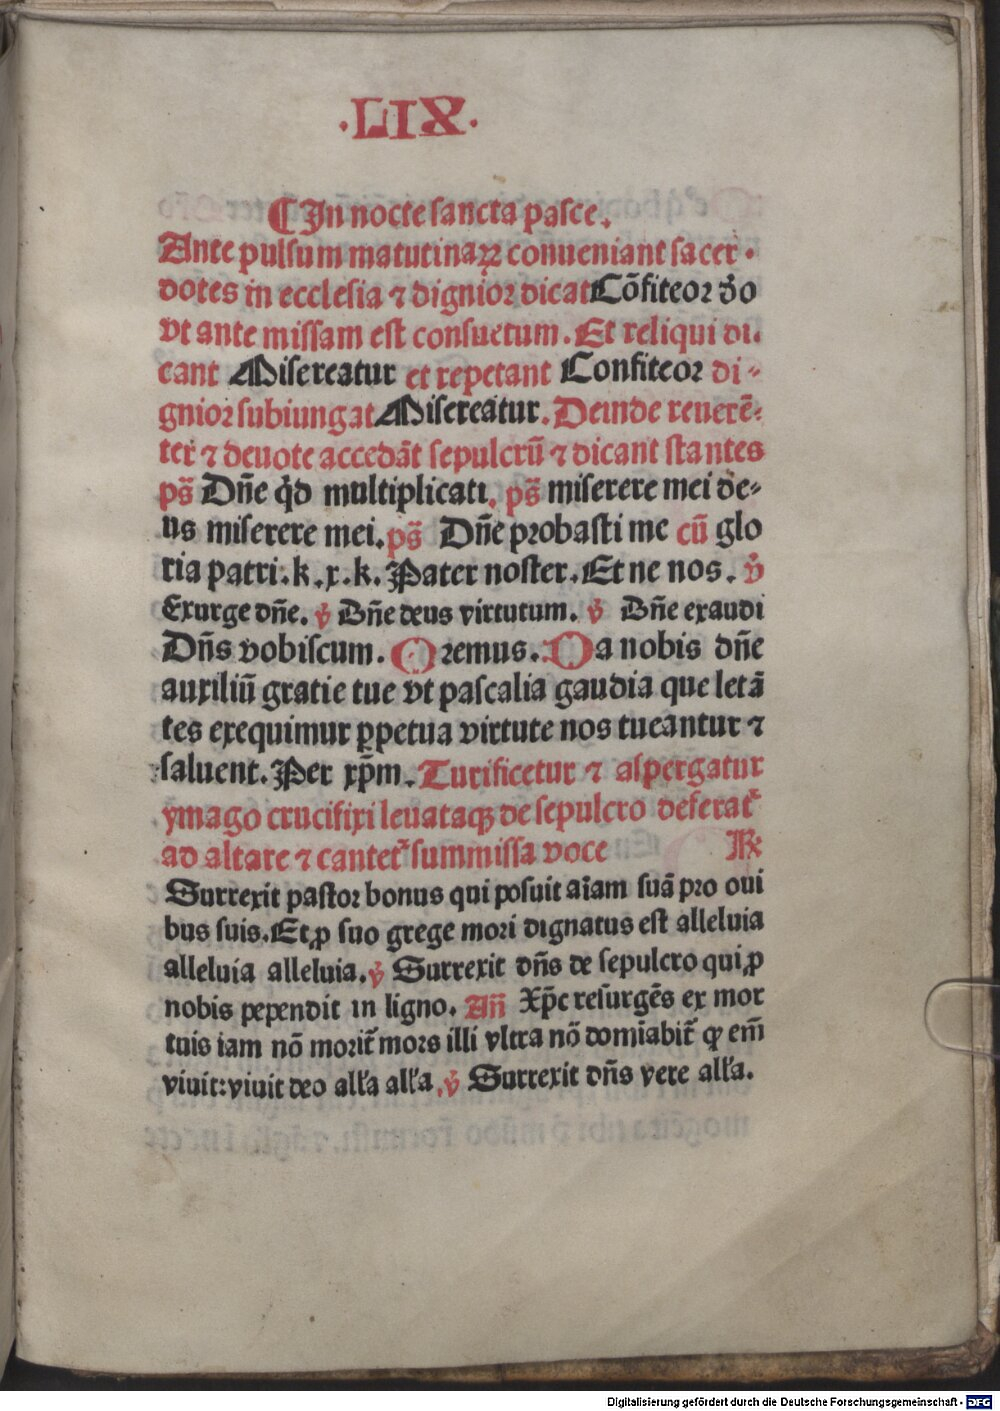 .LIX.
¶ In nocte sancta pasce.
Ante pulsum matutinaꝝ conueniant sacer-
dotes in ecclesia ⁊ dignior dicat Cōfiteor d̄o
vt ante missam est consuetum. Et reliqui di-
cant Misereatur et repetant Confiteor di-
gnior subiungat Misereatur. Deinde reuerē-
ter ⁊ deuote accedāt sepulcrū ⁊ dicant stantes
ps̄ Dn̄e q̇d multiplicati. ps̄ miserere mei de-
us miserere mei. ps̄ Dn̄e probasti me cū glo
ria patri. k. x. k. Pater noster. Et ne nos. v̄
Exurge dn̄e. v̄ Dn̄e deus virtutum. v̄ Dn̄e exaudi
Dn̄s vobiscum. Oremus. Da nobis dn̄e
auxiliū gratie tue vt pascalia gaudia que letā
tes exequimur ꝑpetua virtute nos tueantur ⁊
saluent. Per xp̄m. Turificetur ⁊ aspergatur
ymago crucifixi leuataqꝫ de sepulcro deferat᷑
ad altare ⁊ cantet᷑ summissa voce ℟
Surrexit pastor bonus qui posuit aīam suā pro oui
bus suis. Et ꝓ suo grege mori dignatus est alleluia
alleluia alleluia. v̄ Surrexit dn̄s de sepulcro qui ꝓ
nobis pependit in ligno. Añ Xp̄c resurgēs ex mor
tuis iam nō morit᷑ mors illi vltra nō domīabit᷑ ꝙ em̄
viuit: viuit deo alľa alľa. v̄ Surrexit dn̄s vere alľa.
Digitalisierung gefördert durch die Deutsche Forschungsgemeinschaft - DFG